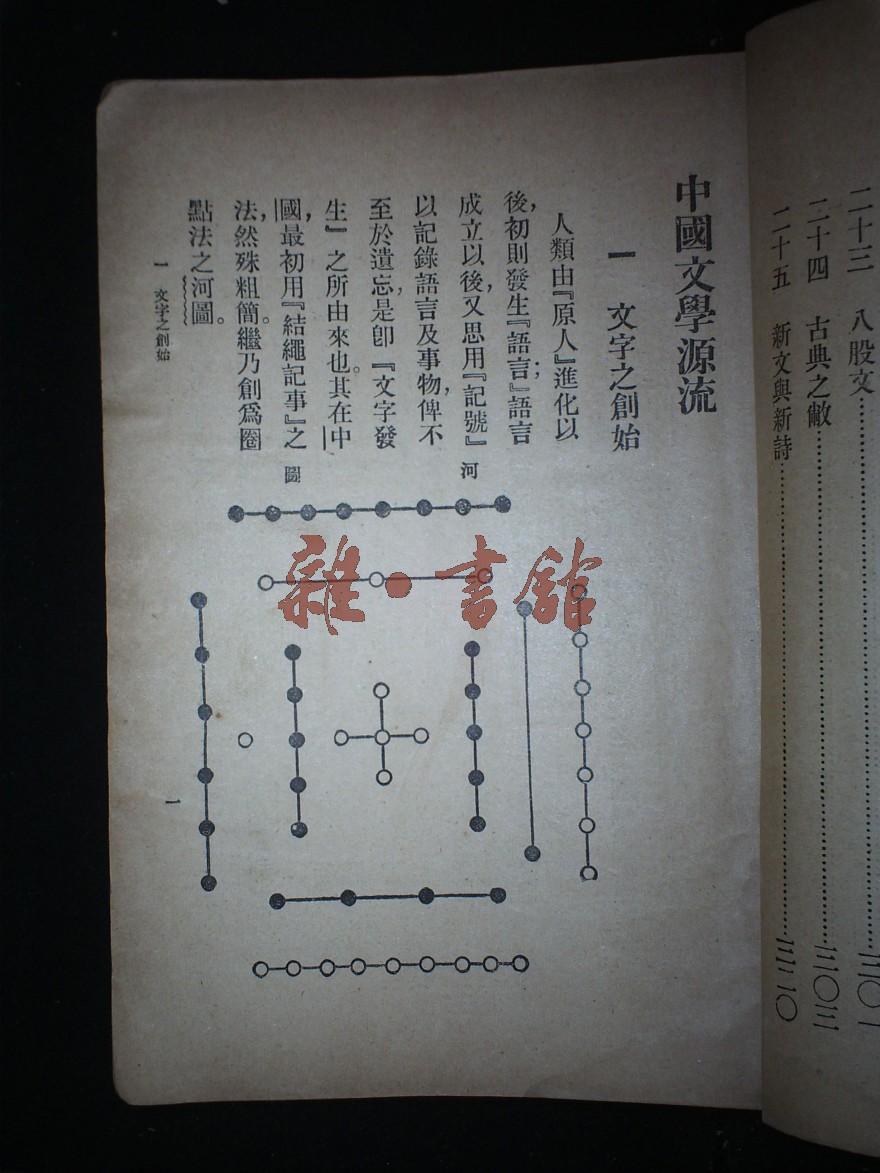 二十三　八股文……………三〇一
二十四　古典之敝……………三〇三
二十五　新文與新詩……………三二〇
中國文學源流
一　文字之創始
人類由『原人』進化以
後，初則發生『語言』；語言
成立以後，又思用『記號』
以記錄語言及事物，俾不
至於遺忘，是卽『文字發
生』之所由來也。其在中
國，最初用『結繩記事』之
法，然殊粗簡。繼乃創爲圈
點法之河圖。
河
圖
一　文字之創始
一
雜·書館